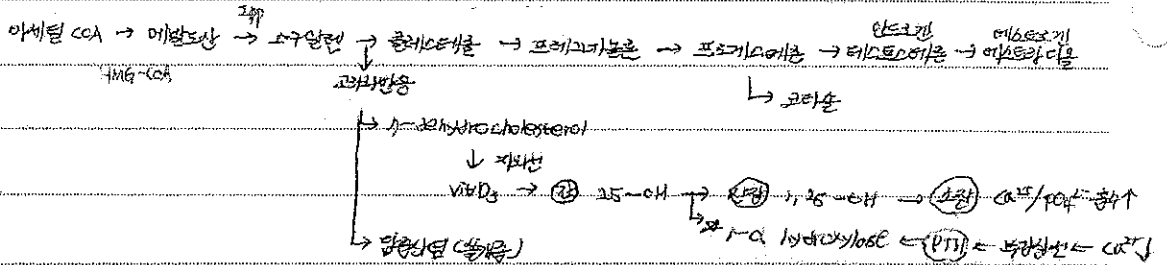 안드로겐 에스트로겐
아세틸 COA → 메발도산 → 스쿠알렌 → 콜레스테롤 → 프레그가놀론 → 프로게스테론 → 테스토스테론 → 에스트라디올
HMG-COA
고리화반응 ↳ 코티솔
↳ 7-dehydrocholesterol
↓ 자외선
vitD₃ → 간 25-OH → 신장 1,25-OH → 소장 Ca²⁺/PO₄²⁻ 흡수↑
1-α hydroxylase ← PTH ← 부갑상선 ← Ca²⁺↓
↳ 담즙산염 (쓸개즙)